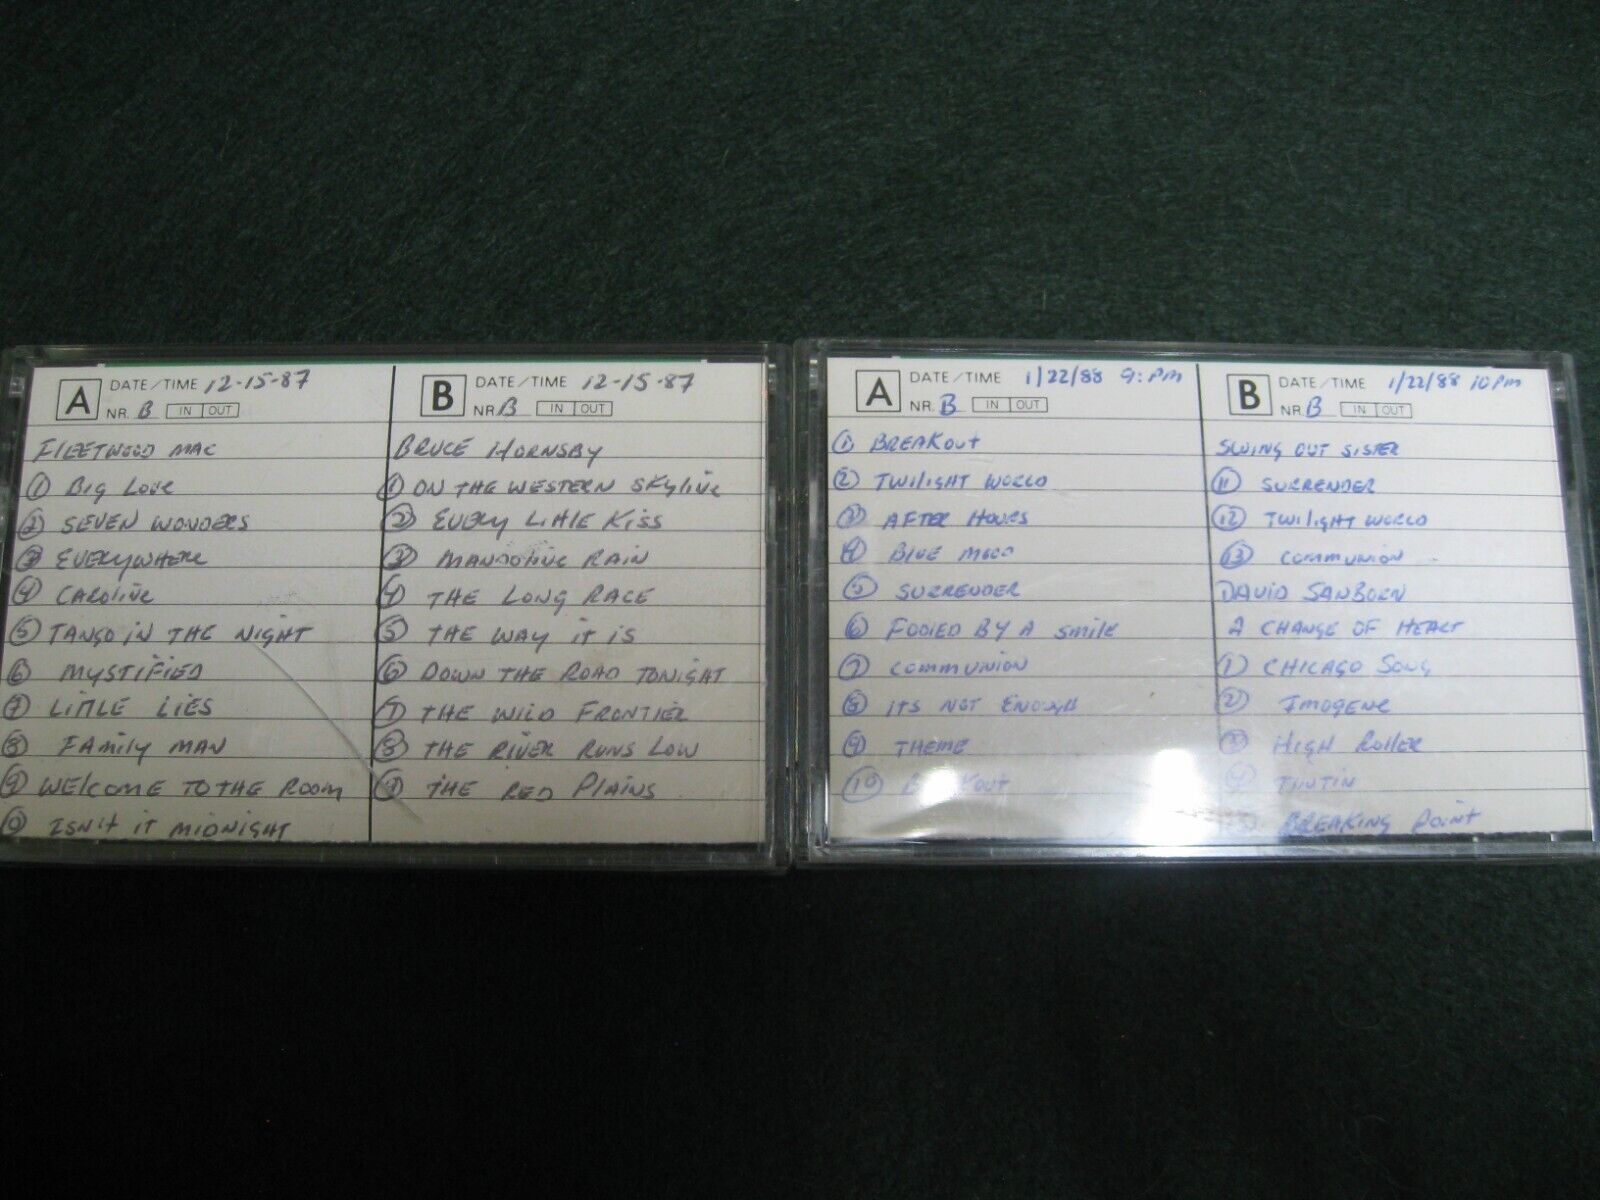 A DATE/TIME 12-15-87
NR. B IN OUT
FLEETWOOD MAC
① BIG LOVE
② SEVEN WONDERS
③ EVERYWHERE
④ CAROLINE
⑤ TANGO IN THE NIGHT
⑥ MYSTIFIED
⑦ LITTLE LIES
⑧ FAMILY MAN
⑨ WELCOME TO THE ROOM
⑩ ISN'T IT MIDNIGHT
B DATE/TIME 12-15-87
NR. B IN OUT
BRUCE HORNSBY
① ON THE WESTERN SKYLINE
② EVERY LITTLE KISS
③ MANDOLINE RAIN
④ THE LONG RACE
⑤ THE WAY IT IS
⑥ DOWN THE ROAD TONIGHT
⑦ THE WILD FRONTIER
⑧ THE RIVER RUNS LOW
⑨ THE RED PLAINS
A DATE/TIME 1/22/88 9:PM
NR. B IN OUT
① BREAKOUT
② TWILIGHT WORLD
③ AFTER HOURS
④ BLUE MOOD
⑤ SURRENDER
⑥ FOOLED BY A SMILE
⑦ COMMUNION
⑧ ITS NOT ENOUGH
⑨ THEME
⑩ BREAKOUT
B DATE/TIME 1/22/88 10 PM
NR. B IN OUT
SWING OUT SISTER
⑪ SURRENDER
⑫ TWILIGHT WORLD
⑬ COMMUNION
DAVID SANBORN
A CHANGE OF HEART
① CHICAGO SONG
② IMOGENE
③ HIGH ROLLER
④ TINTIN
BREAKING POINT